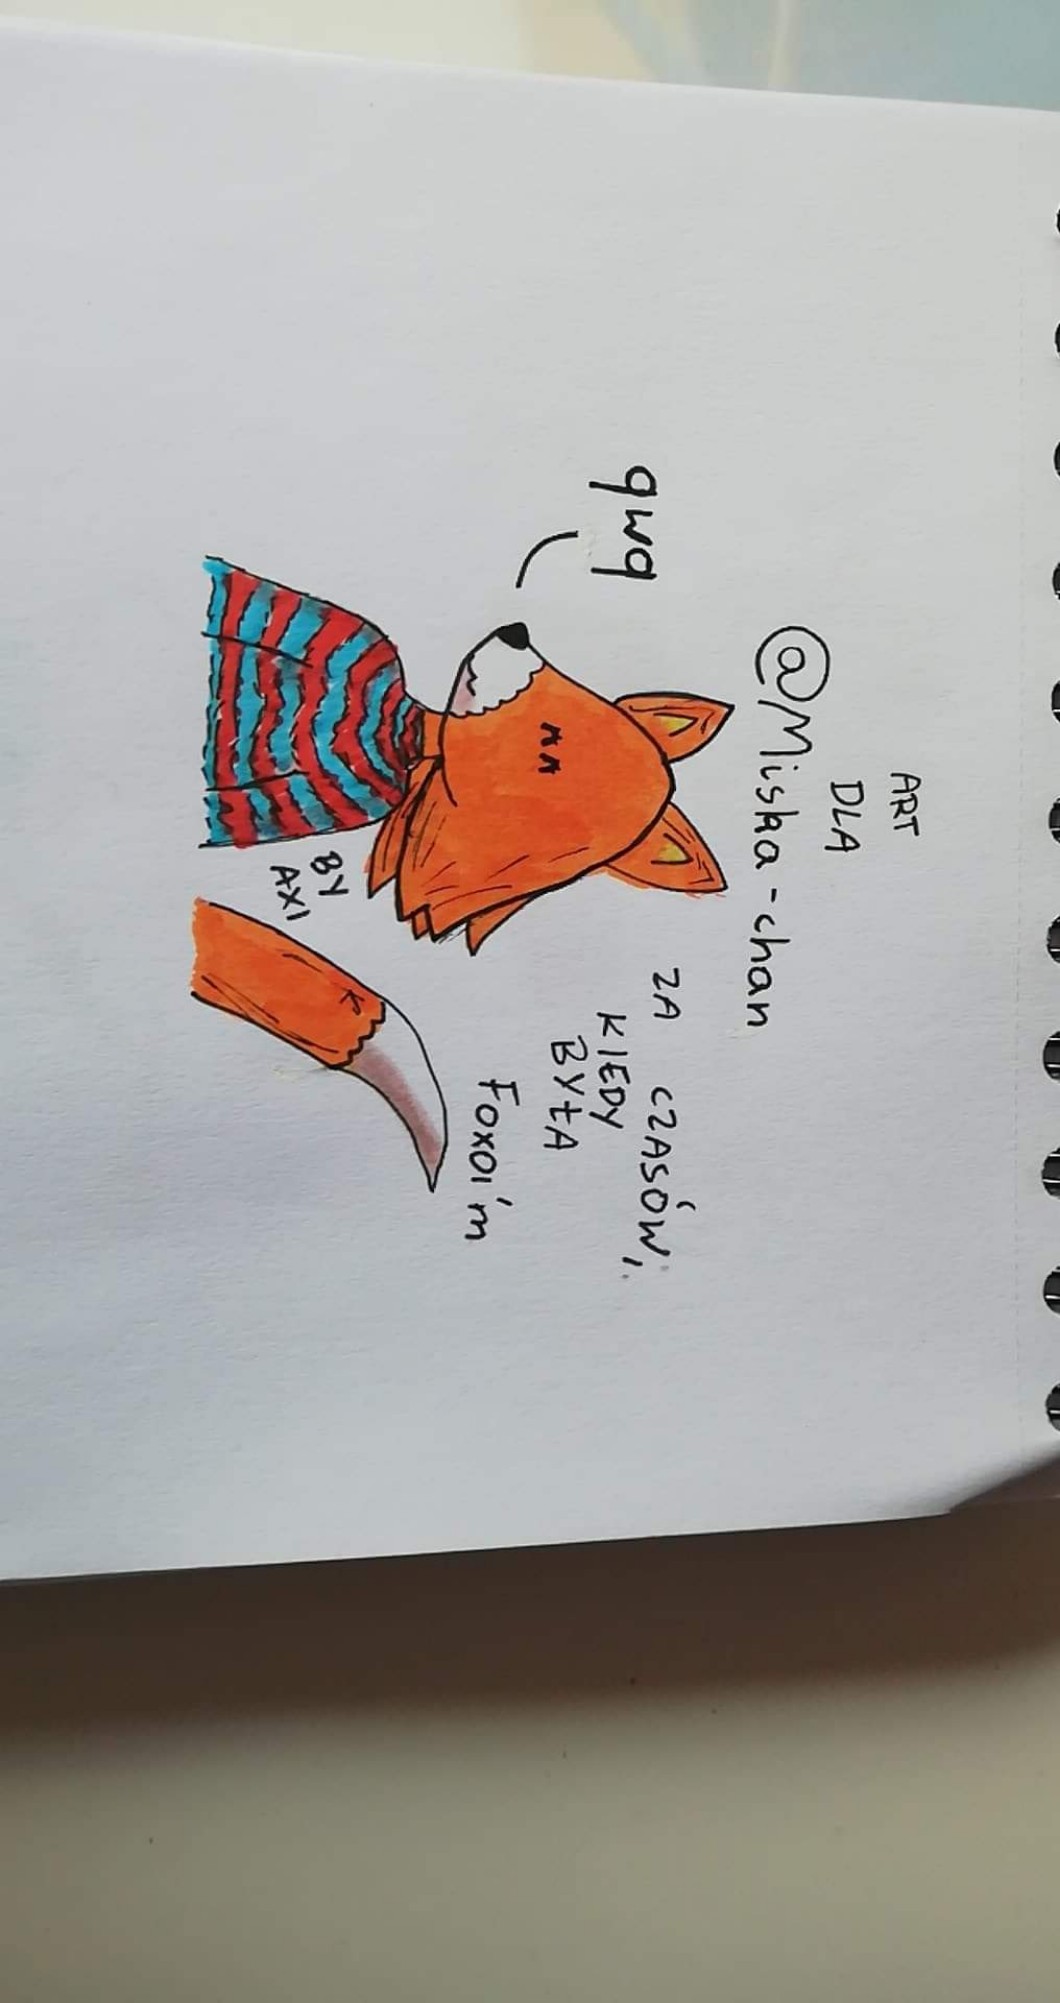 ART
DLA
@Miska-chan
qwq
ZA CZASÓW,
KIEDY
BYŁA
FOXOI'm
BY
AXI